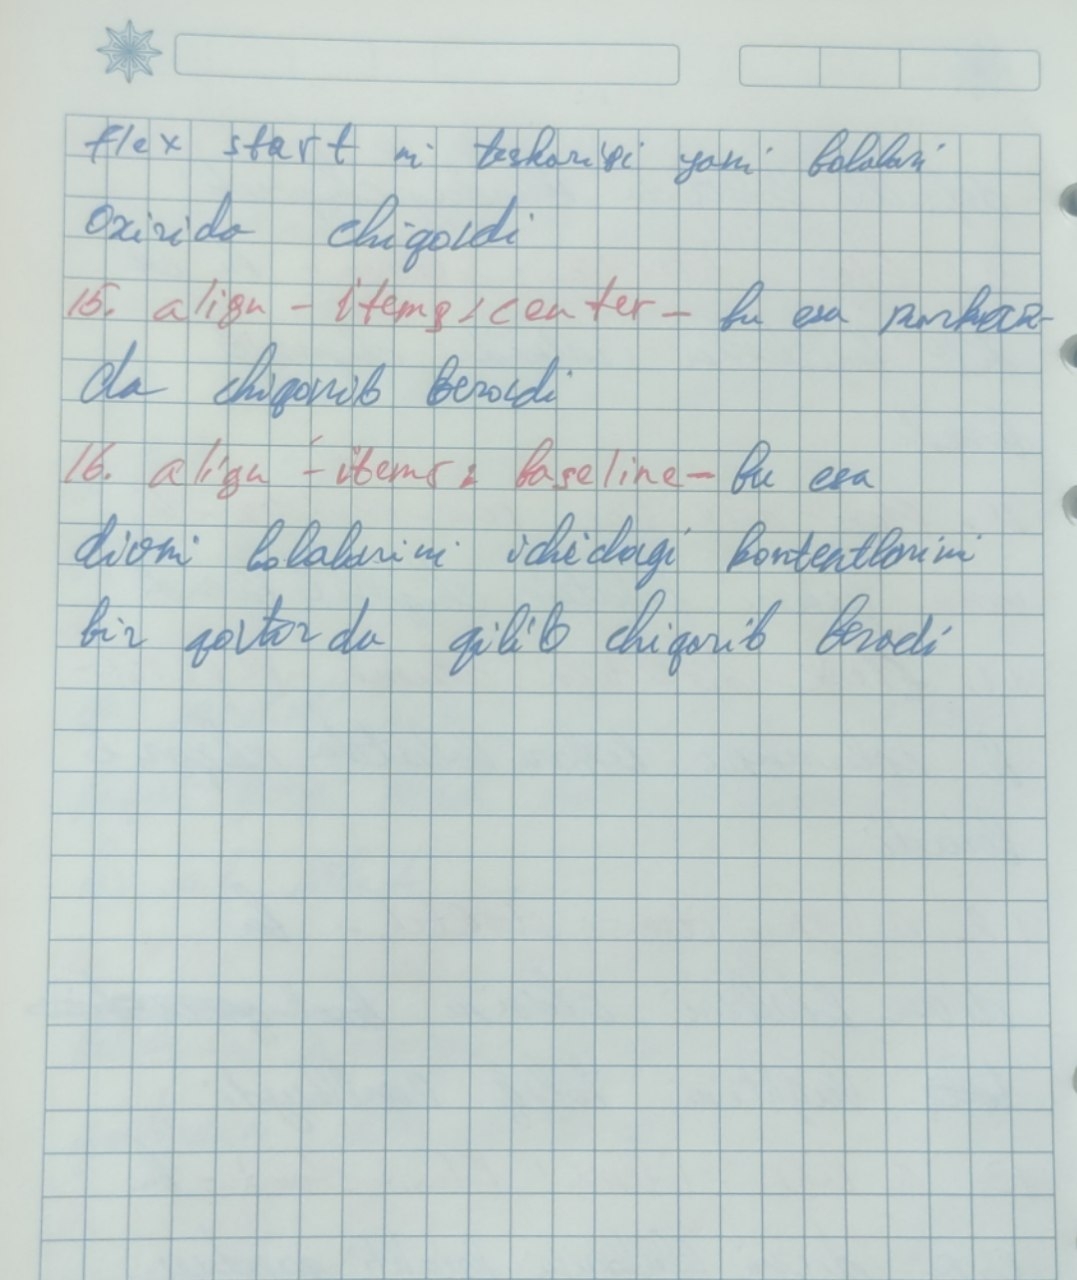 flex start ni teskarisi yani bolalari
oxirida chiqaridi
15. align-items: center - bu esa markaz-
da chiqarib beradi
16. align-items: baseline - bu esa
divni bolalarini ichidagi kontentlarini
bir qatorda qilib chiqarib beradi